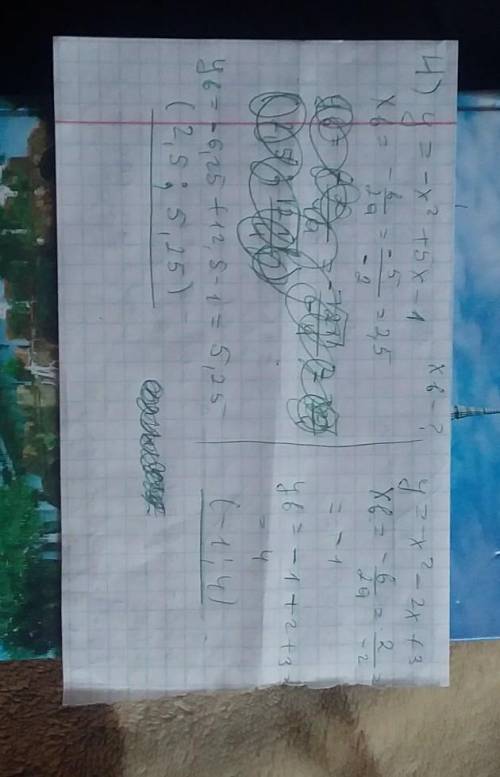 4) y = -x² + 5x - 1 xв - ?
xв = - в/2a = -5/-2 = 2,5
yв = -6,25 + 12,5 - 1 = 5,25
(2,5; 5,25)
y = -x² - 2x + 3
xв = - в/2a = 2/-2 =
= -1
yв = -1 + 2 + 3 =
= 4
(-1; 4)